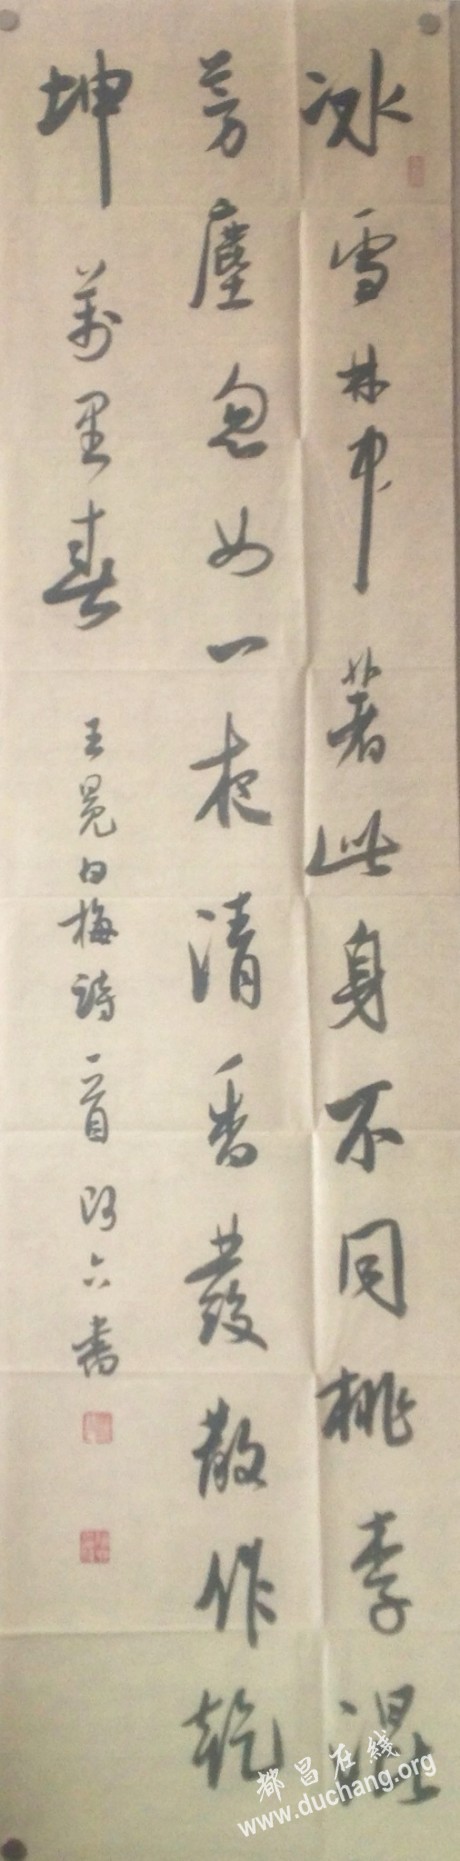 冰雪林中著此身不同桃李混
芳塵忽如一夜清香發散作乾
坤萬里春
王冕白梅詩一首阿六書
都昌在线
www.duchang.org